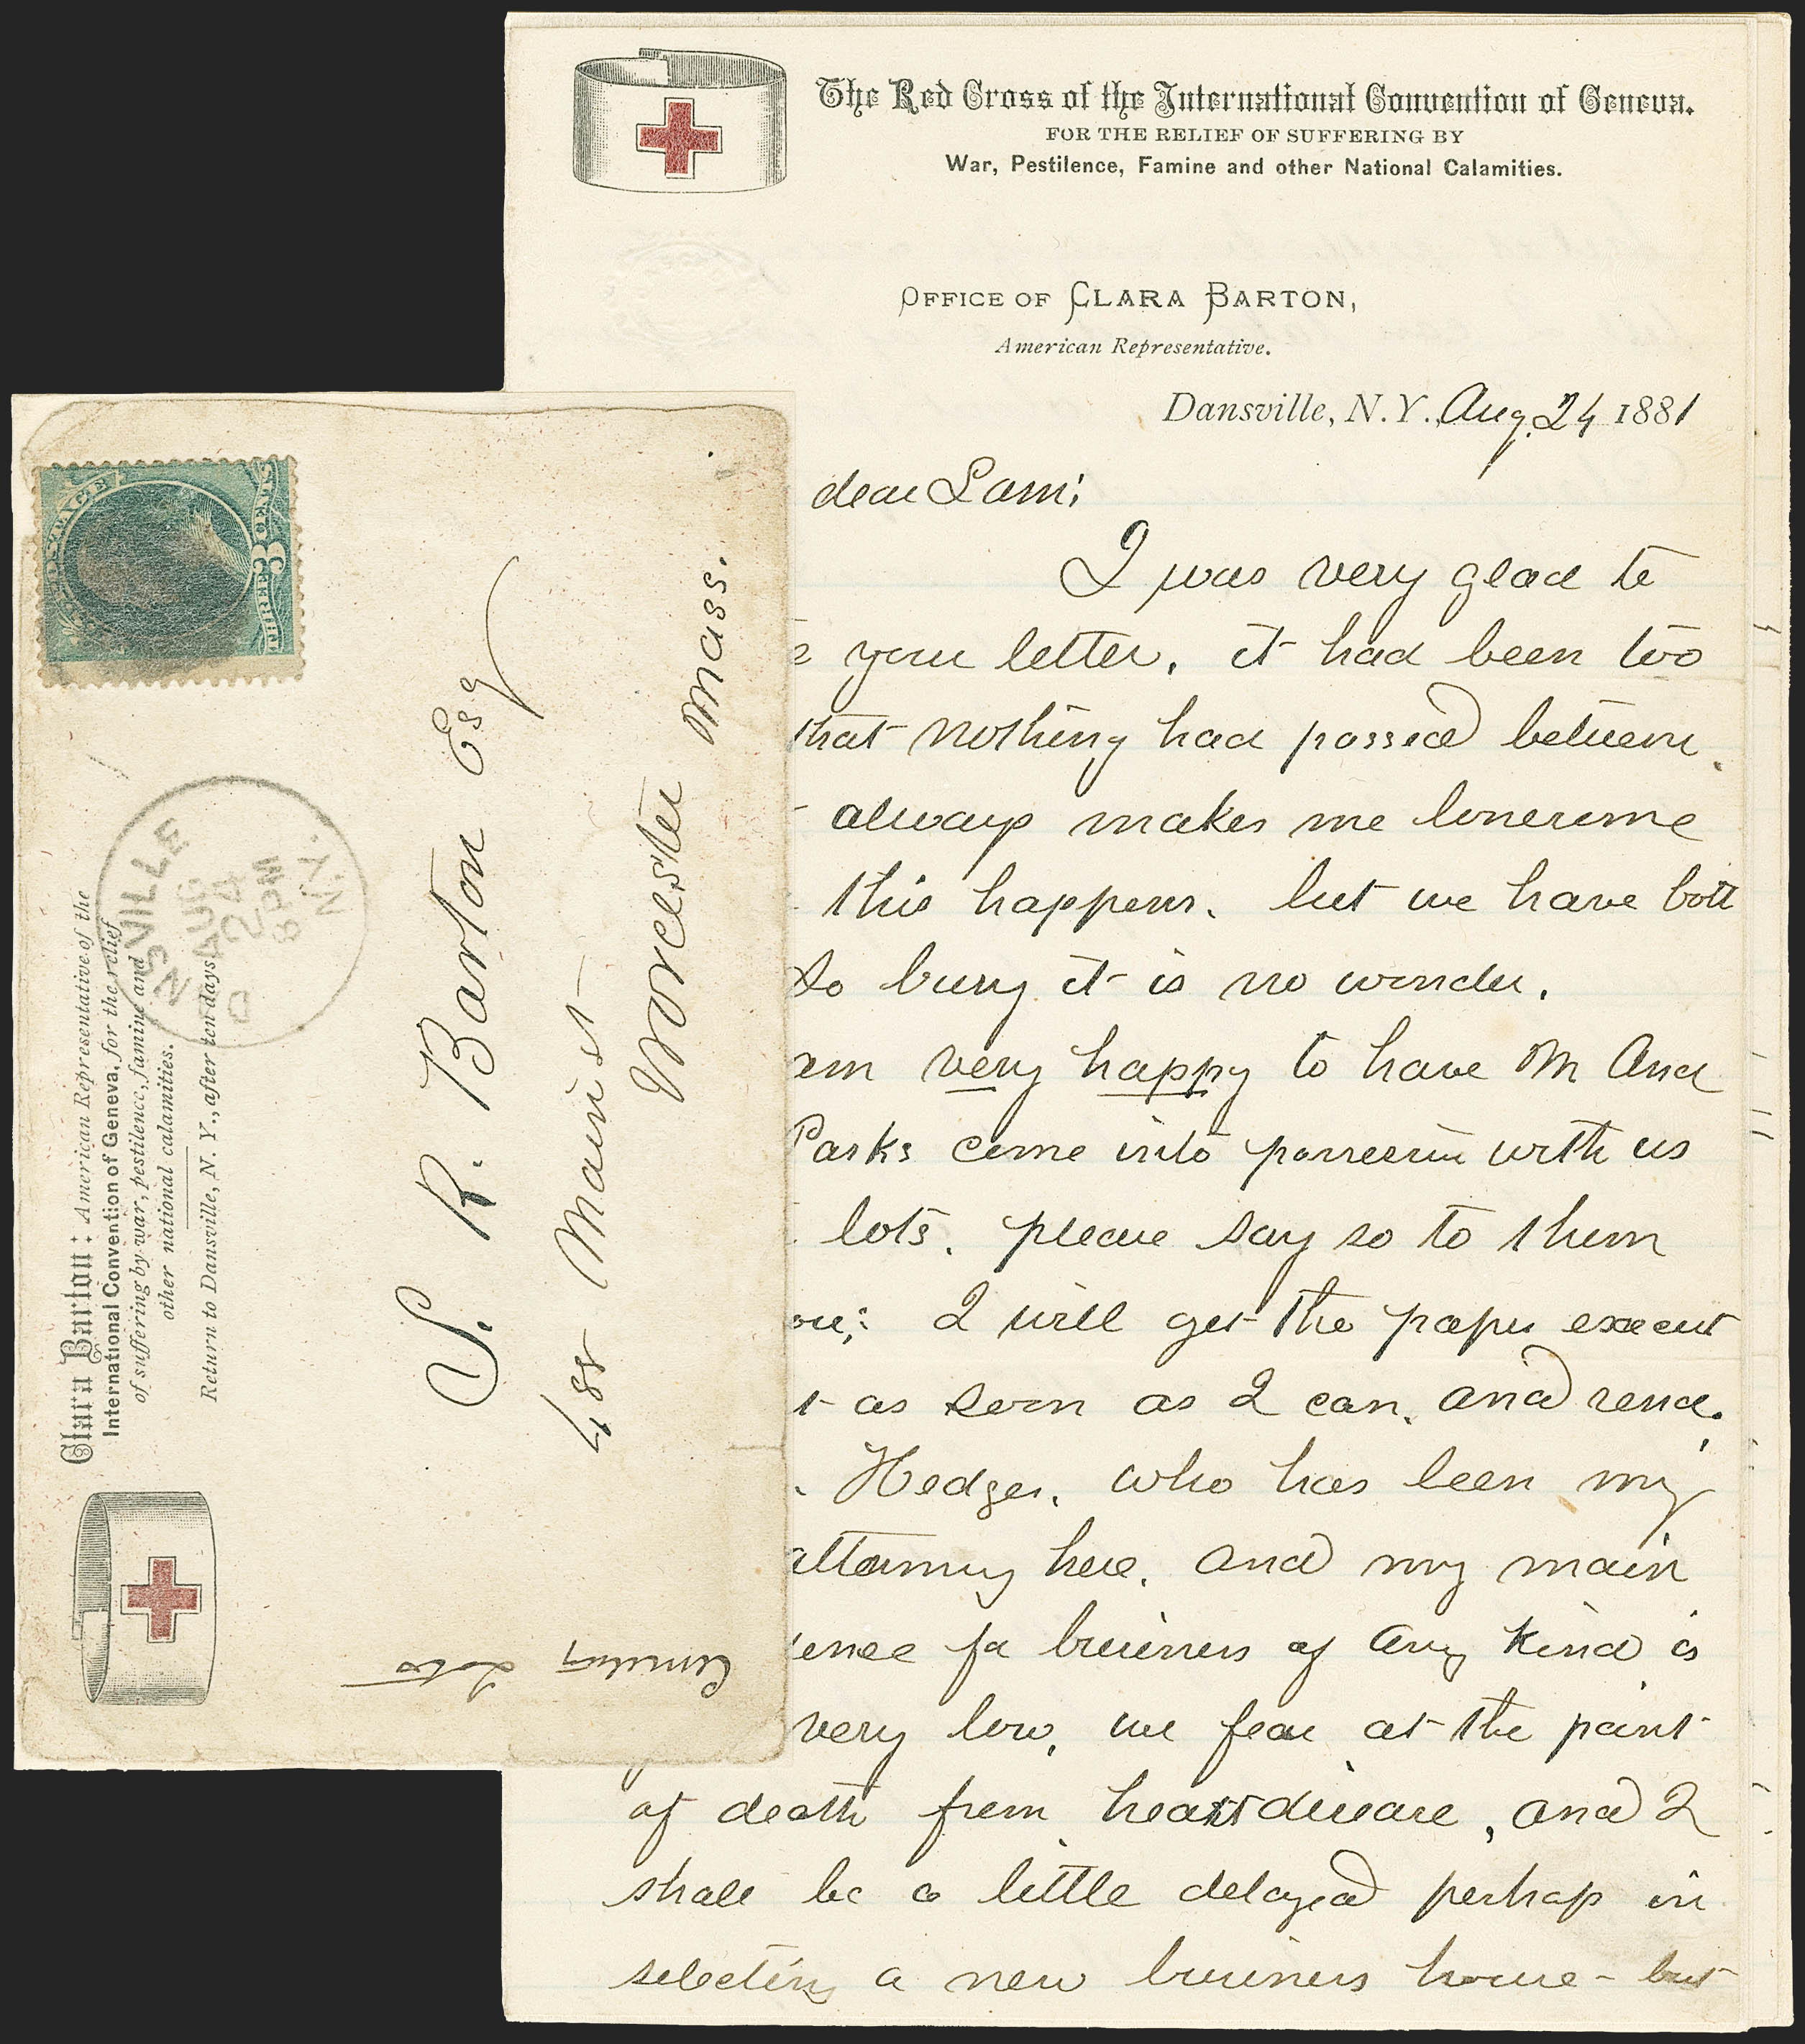 The Red Cross of the International Convention of Geneva.
FOR THE RELIEF OF SUFFERING BY
War, Pestilence, Famine and other National Calamities.
OFFICE OF CLARA BARTON,
American Representative.
Dansville, N. Y., Aug. 24 1881
dear Sam;
I was very glad to
your letter. it had been too
that nothing had passed between
always makes me lonesome
this happens. but we have both
so busy it is no wonder.
am very happy to have M And
Parks come into possession with us
lots. please say so to them
I will get the paper execut
as soon as I can, and send.
Hedges, who has been my
attorney here, and my main
for business of any kind is
very low, we fear at the point
of death from heart disease, and I
shall be a little delayed perhap in
selecting a new business house - but
POSTAGE
3 CENTS
THREE
DANSVILLE
N.Y.
AUG
24
6 PM
Clara Barton: American Representative of the
International Convention of Geneva, for the relief
of suffering by war, pestilence, famine and
other national calamities.
Return to Dansville, N. Y., after ten days
S. R. Barton Esq
Main st
Worcester Mass.
Cemetery Lots